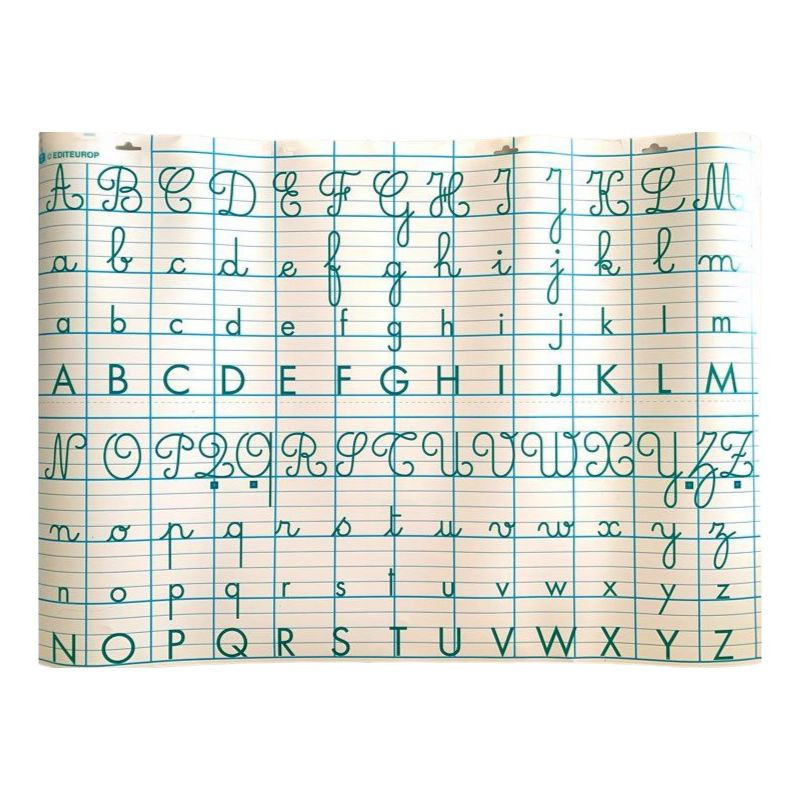 © EDITEUROP
A B C D E F G H I J K L M
a b c d e f g h i j k l m
a b c d e f g h i j k l m
A B C D E F G H I J K L M
N O P Q Q R S T U V W X Y Z Z
n o p q r s t u v w x y z
n o p q r s t u v w x y z
N O P Q R S T U V W X Y Z